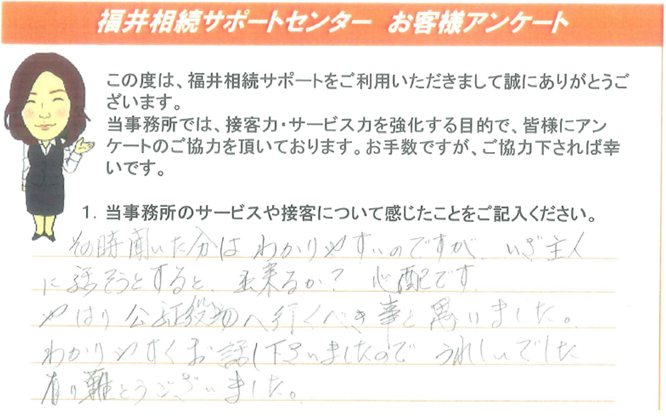 福井相続サポートセンター お客様アンケート
この度は、福井相続サポートをご利用いただきまして誠にありがとうご
ざいます。
当事務所では、接客力・サービス力を強化する目的で、皆様にアン
ケートのご協力を頂いております。お手数ですが、ご協力下されば幸
いです。
1. 当事務所のサービスや接客について感じたことをご記入ください。
その時聞いた分はわかりやすいのですが、いざ主人
に話そうとすると、出来るか? 心配です。
やはり公証役場へ行くべき事と思いました。
わかりやすくお話し下さいましたので うれしいでした
有り難とうございました。